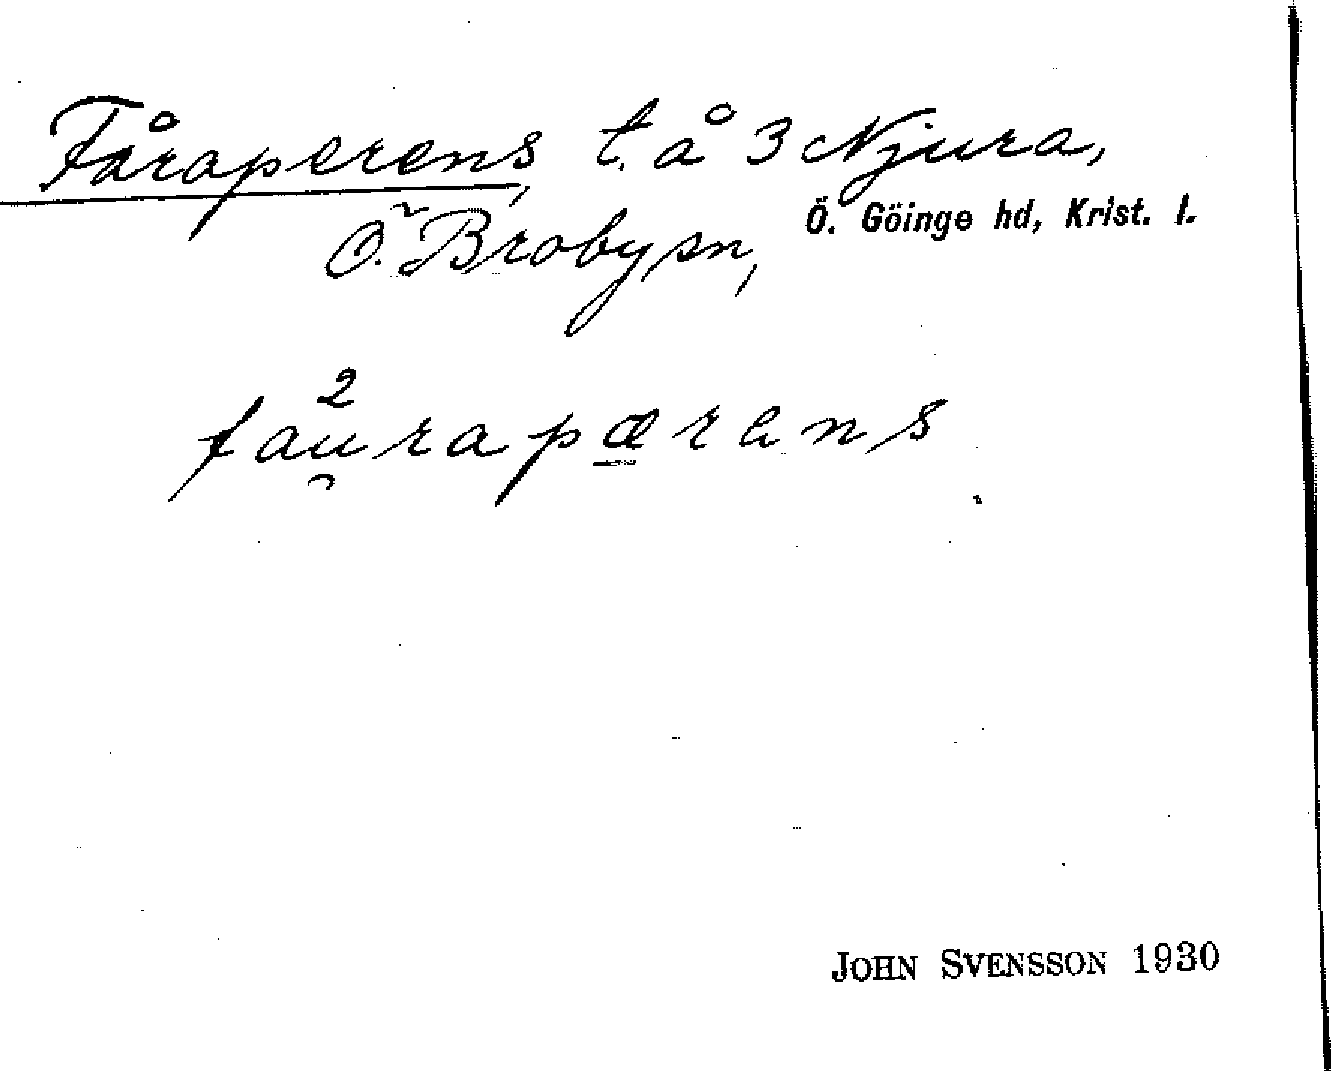 Fåraperens, t. å 3 Njura,
Ö. Broby sn, Ö. Göinge hd, Krist. l.
2
fau̯rapærens
JOHN SVENSSON 1930